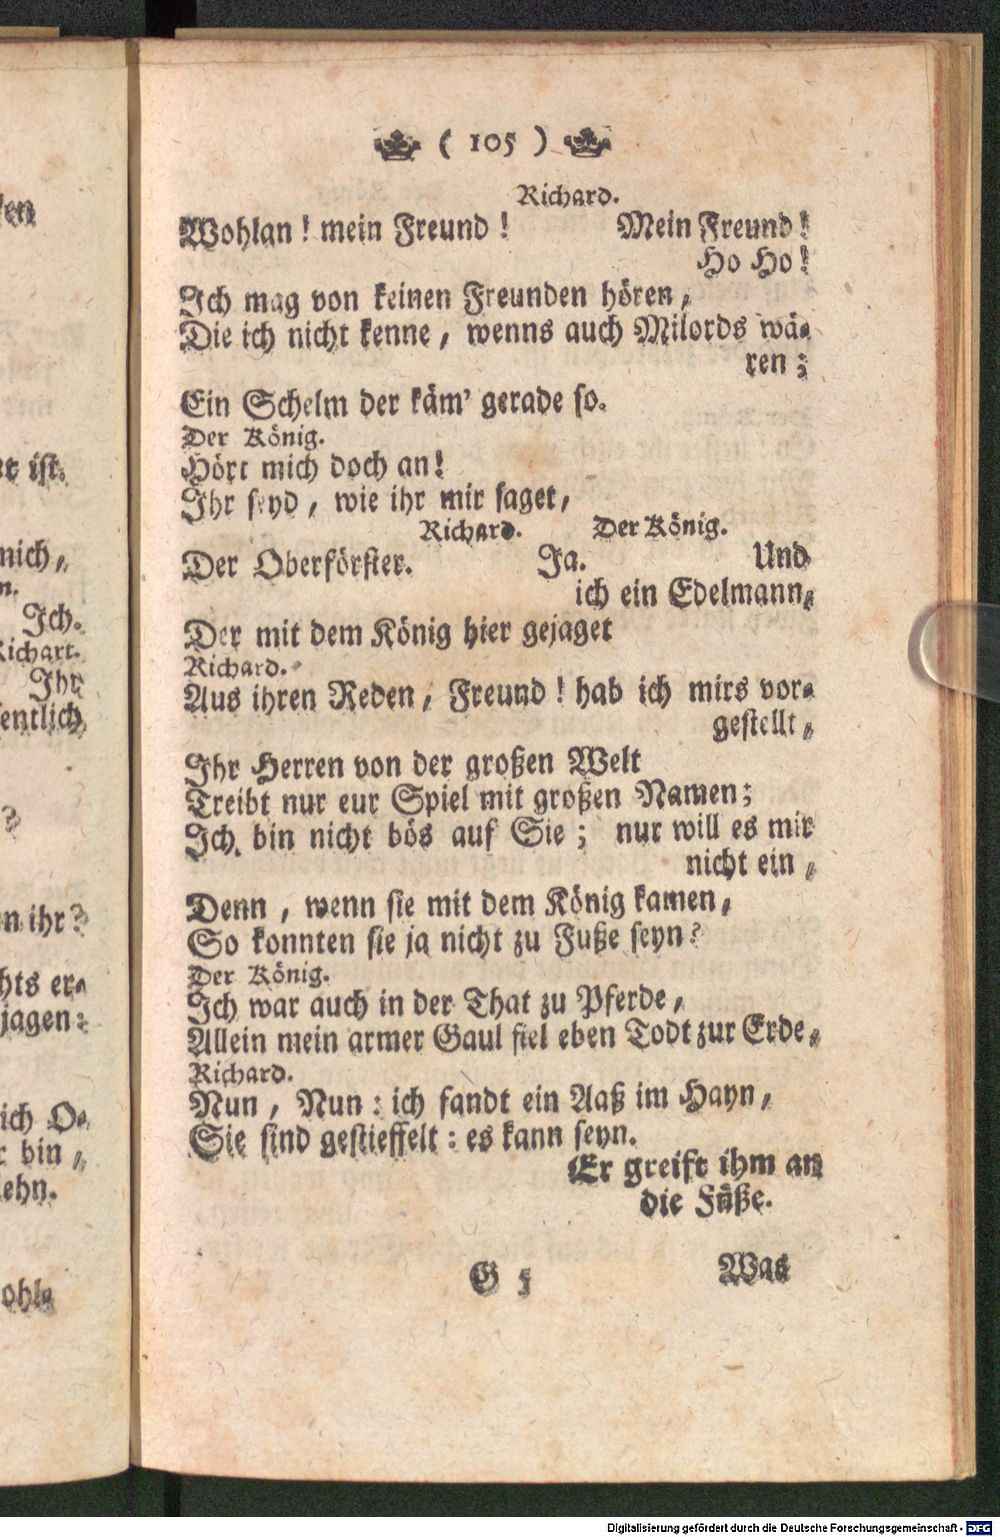 en
t ist.
mich,
n.
Ich.
Richart.
Ihr
entlich
?
n ihr?
hts er-
jagen:
ich O-
r bin,
ehn.
ohl-
( 105 )
Richard.
Wohlan! mein Freund! Mein Freund!
Ho Ho!
Ich mag von keinen Freunden hören,
Die ich nicht kenne, wenns auch Milords wä-
ren;
Ein Schelm der käm' gerade so.
Der König.
Hört mich doch an!
Ihr seyd, wie ihr mir saget,
Richard. Der König.
Der Oberförster. Ja. Und
ich ein Edelmann,
Der mit dem König hier gejaget
Richard.
Aus ihren Reden, Freund! hab ich mirs vor-
gestellt,
Ihr Herren von der großen Welt
Treibt nur eur Spiel mit großen Namen;
Ich bin nicht bös auf Sie; nur will es mir
nicht ein,
Denn, wenn sie mit dem König kamen,
So konnten sie ja nicht zu Fuße seyn?
Der König.
Ich war auch in der That zu Pferde,
Allein mein armer Gaul fiel eben Todt zur Erde,
Richard.
Nun, Nun: ich fandt ein Aaß im Hayn,
Sie sind gestieffelt: es kann seyn.
Er greift ihm an
die Füße.
G 5 Was
Digitalisierung gefördert durch die Deutsche Forschungsgemeinschaft - DFG